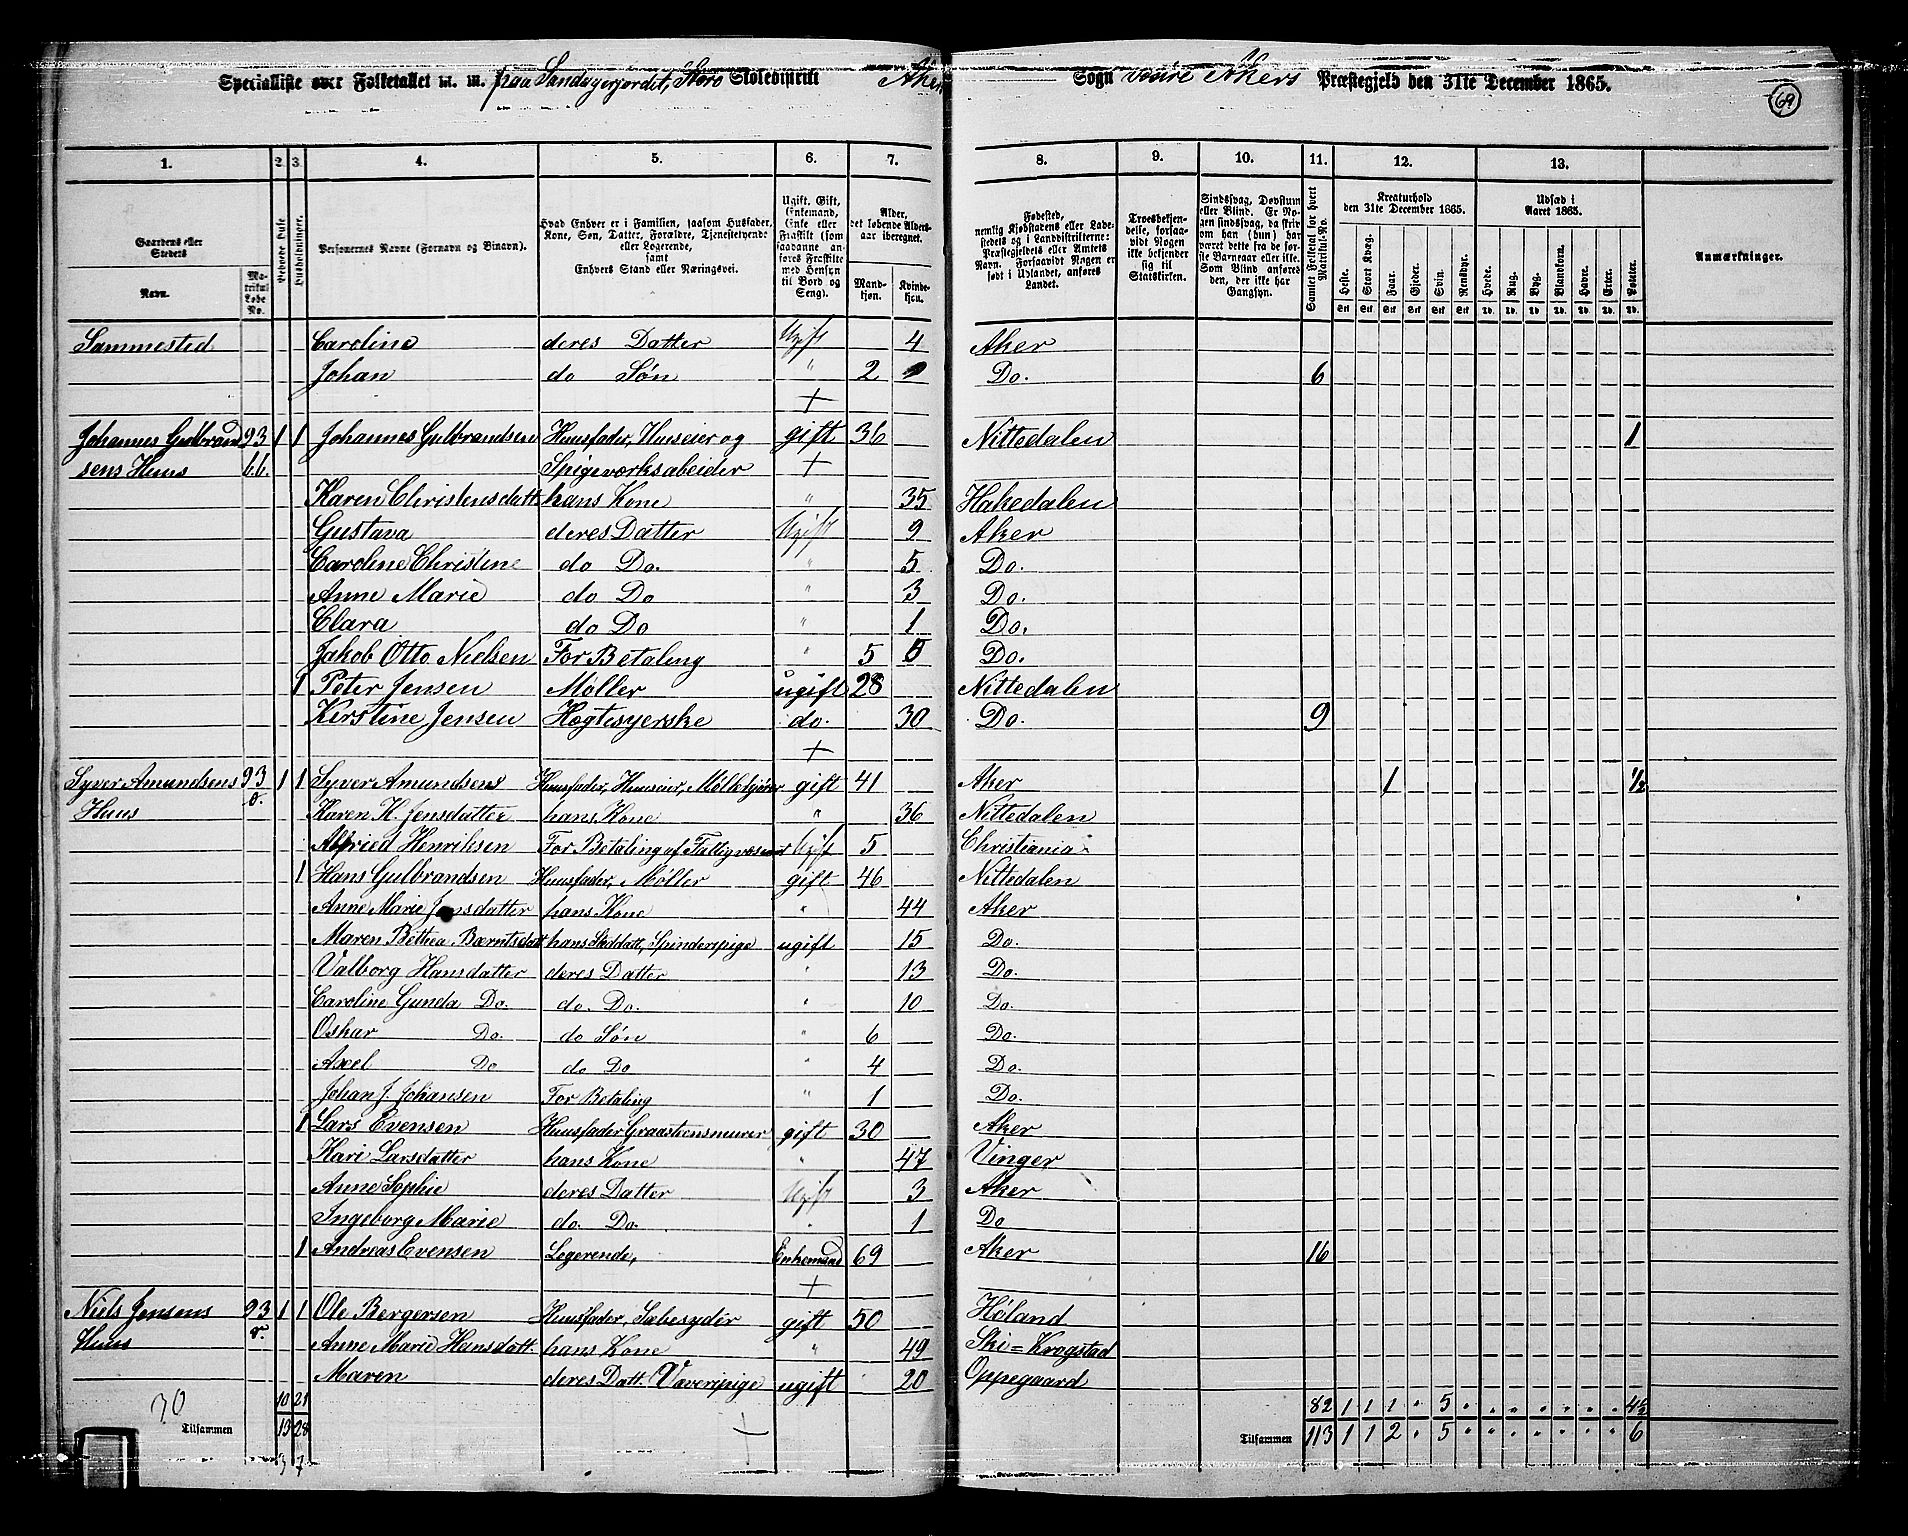 Specialliste over Folketallet m. m. paa Sandagerjordet, Skoledistrikt Aker Sogn Akers Præstegjeld den 31te December 1865.
69
1. 2. 3. 4. 5. 6. 7. 8. 9. 10. 11. 12. 13.
Gaardens eller Stedets Navn. Matrikul Løbe No. Beboede Huse Husholdninger.
Personernes Navne (Fornavn og Binavn).
Hvad Enhver er i Familien, saasom Husfader, Kone, Søn, Datter, Forældre, Tjenestetyende eller Logerende, samt Enhvers Stand eller Næringsvei.
Ugift, Gift, Enkemand, Enke eller Fraskilt (som saadanne anføres Fraskilte med Hensyn til Bord og Seng).
Alder, det løbende Alders-aar iberegnet. Mandkjøn. Kvindekjøn.
Fødested, nemlig Kjøbstadens eller Ladestedets og i Landdistrikterne: Præstegjeldets eller Amtets Navn. Forsaavidt Nogen er født i Udlandet, anføres Landet.
Troesbekjendelse, forsaavidt Nogen ikke bekjender sig til Statskirken.
Sindssvag, Døvstum eller Blind. Er Nogen sindssvag, da skrives om han (hun) har været dette fra de første Barneaar eller ikke. Som Blind anføres den, der ikke har Gangsyn.
Samlet Folketal for hvert Matrikul-No.
Kreaturhold den 31te December 1865. Heste. Stort Kvæg. Faar. Gjeder. Svin. Rensdyr.
Udsæd i Aaret 1865. Hvede. Rug. Byg. Blandkorn. Havre. Erter. Poteter.
Anmærkninger.
Sammested Caroline deres Datter Ugift 4 Aker
Johan do Søn " 2 Do. 6
Johannes Gulbrand 93 1 1 Johannes Gulbrandsen Huusfader, Huuseier og gift 36 Nittedalen 1
sens Huus Spigeværksabeider
Karen Christensdatt. hans Kone " 35 Hakedalen
Gustava deres Datter Ugift 9 Aker
Caroline Christine do Do. " 5 Do.
Anne Marie do Do " 3 Do.
Clara do Do " 1 Do.
Jakob Otto Nielsen For Betaling " 5 Do.
1 Peter Jensen Møller ugift 28 Nittedalen
Kirstine Jensen Hegtesyerske do. 30 Do. 9
Syver Amundsens 93 1 1 Syver Amundsens Huusfader, Huuseier, gift 41 Aker 1 1/2
Huus Karen K. Jensdatter hans Kone " 36 Nittedalen
Alfried Henriksen For Betaling af Fattigvæsenet Ugift 5 Christiania
1 Hans Gulbrandsen Huusfader, Møller gift 46 Nittedalen
Anne Marie Jensdatter hans Kone " 44 Aker
Maren Bethea Bærntsdatt hans Steddatt, Spinderipige ugift 15 Do.
Valborg Hansdatter deres Datter " 13 Do.
Caroline Gunda Do. do. Do. " 10 Do.
Oskar Do. do Søn " 6 Do.
Axel Do do Do " 4 Do.
Johan J. Johansen For Betaling " 1 Do.
1 Lars Evensen Huusfader Graasteensmurer gift 30 Aker
Kari Larsdatter hans Kone " 47 Vinger
Anne Sophie deres Datter Ugift 3 Aker
Ingeborg Marie do. Do. " 1 Do
1 Andreas Evensen Logerende, Enkemand 69 Aker 16
Niels Jensens 93 1 1 Ole Bergersen Huusfader, Sæbesyder gift 50 Høland
Huus Anne Marie Hansdatt. hans Kone " 49 Ski = Krogstad
Maren deres Datt. Væveripige ugift 20 Oppegaard
10 21 82 1 1 1 " 5 " " " " " " " 4½
30 Tilsammen 13 28 Tilsammen 113 1 1 2 " 5 " " " " " " " 6
3 7